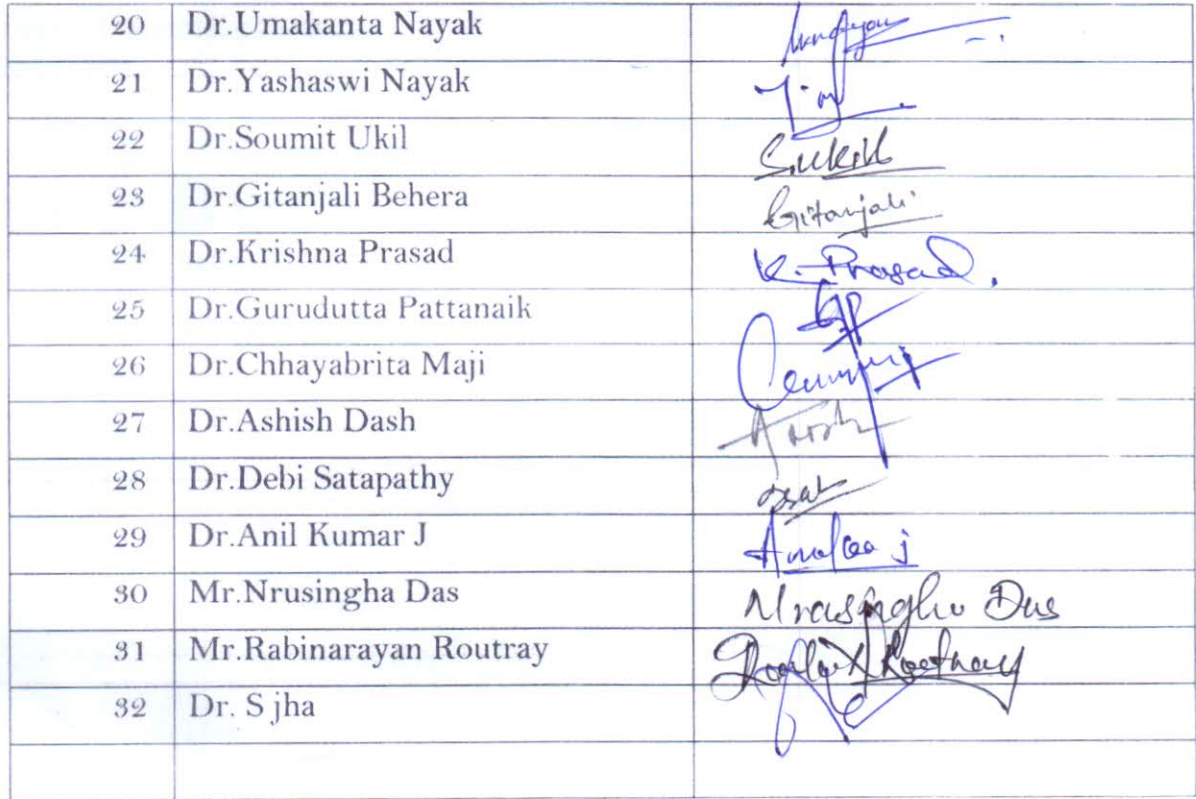 20 Dr.Umakanta Nayak
21 Dr.Yashaswi Nayak
22 Dr.Soumit Ukil S.Ukil
23 Dr.Gitanjali Behera Gitanjali
24 Dr.Krishna Prasad K. Prasad.
25 Dr.Gurudutta Pattanaik
26 Dr.Chhayabrita Maji
27 Dr.Ashish Dash
28 Dr.Debi Satapathy
29 Dr.Anil Kumar J
30 Mr.Nrusingha Das Nrusingha Das
31 Mr.Rabinarayan Routray Routray
32 Dr. S jha